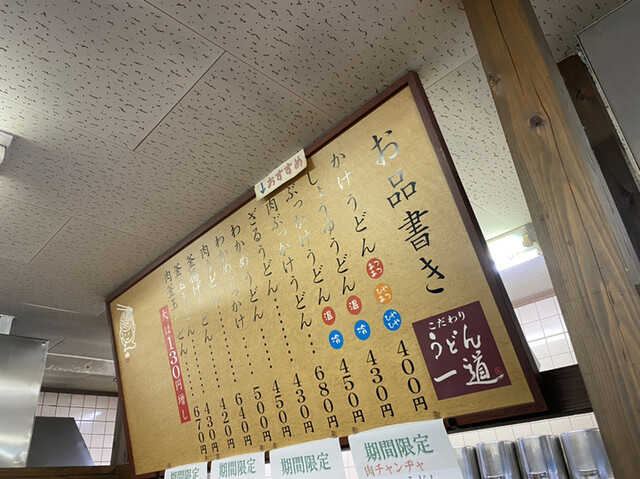 お品書き
かけうどん あつあつ ひやあつ ひやひや 400円
しょうゆうどん 温 冷 430円
ぶっかけうどん 温 冷 450円
肉ぶっかけうどん 680円
ざるうどん 430円
わかめうどん 450円
わかめ かけ 500円
肉うどん 640円
釜揚げ どん 420円
釜玉うどん 430円
肉釜玉 670円
大は130円増し
↓おすすめ
こだわり
うどん
一道
期間限定
期間限定
期間限定
期間限定
肉チャンヂャ